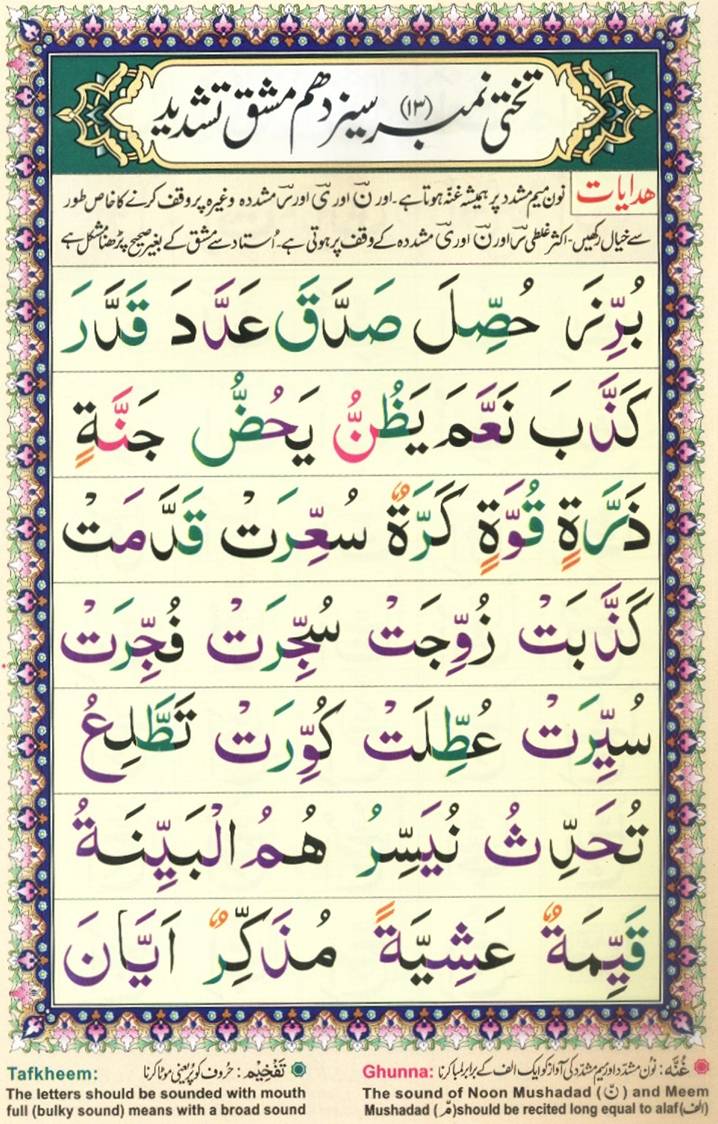 تختی نمبر (۱۳) سیزدھم مشق تشدید
ھدایات نون میم مشدد پر ہمیشہ غنّہ ہوتا ہے۔ اور نّ اور یّ اور سّ مشددہ وغیرہ پر وقف کرنے کا خاص طور
سے خیال رکھیں۔ اکثر غلطی سّ اور نّ اور یّ مشددہ کے وقف پر ہوتی ہے۔ اُستاد سے مشق کے بغیر صحیح پڑھنا مشکل ہے
بُرِّنَ حُصِّلَ صَدَّقَ عَدَّدَ قَدَّرَ
كَذَّبَ نَعَّمَ يَظُنُّ يَحُضُّ جَنَّةٍ
ذَرَّةٍ قُوَّةٍ كَرَّةٌ سُعِّرَتْ قَدَّمَتْ
كَذَّبَتْ زُوِّجَتْ سُجِّرَتْ فُجِّرَتْ
سُيِّرَتْ عُطِّلَتْ كُوِّرَتْ تَطَّلِعُ
تُحَدِّثُ نُيَسِّرُ هُمُ الْبَيِّنَةُ
قَيِّمَةٌ عَشِيَّةً مُذَكِّرٌ اَيَّانَ
غُنَّه: نون مشدّد اور میم مشدّد کی آواز کو ایک الف کے برابر لمبا کرنا
Ghunna:
The sound of Noon Mushadad (نّ) and Meem
Mushadad (مّ) should be recited long equal to alaf (الف)
تَفْخِيْم: حُروف کو پُر یعنی موٹا کرنا
Tafkheem:
The letters should be sounded with mouth
full (bulky sound) means with a broad sound